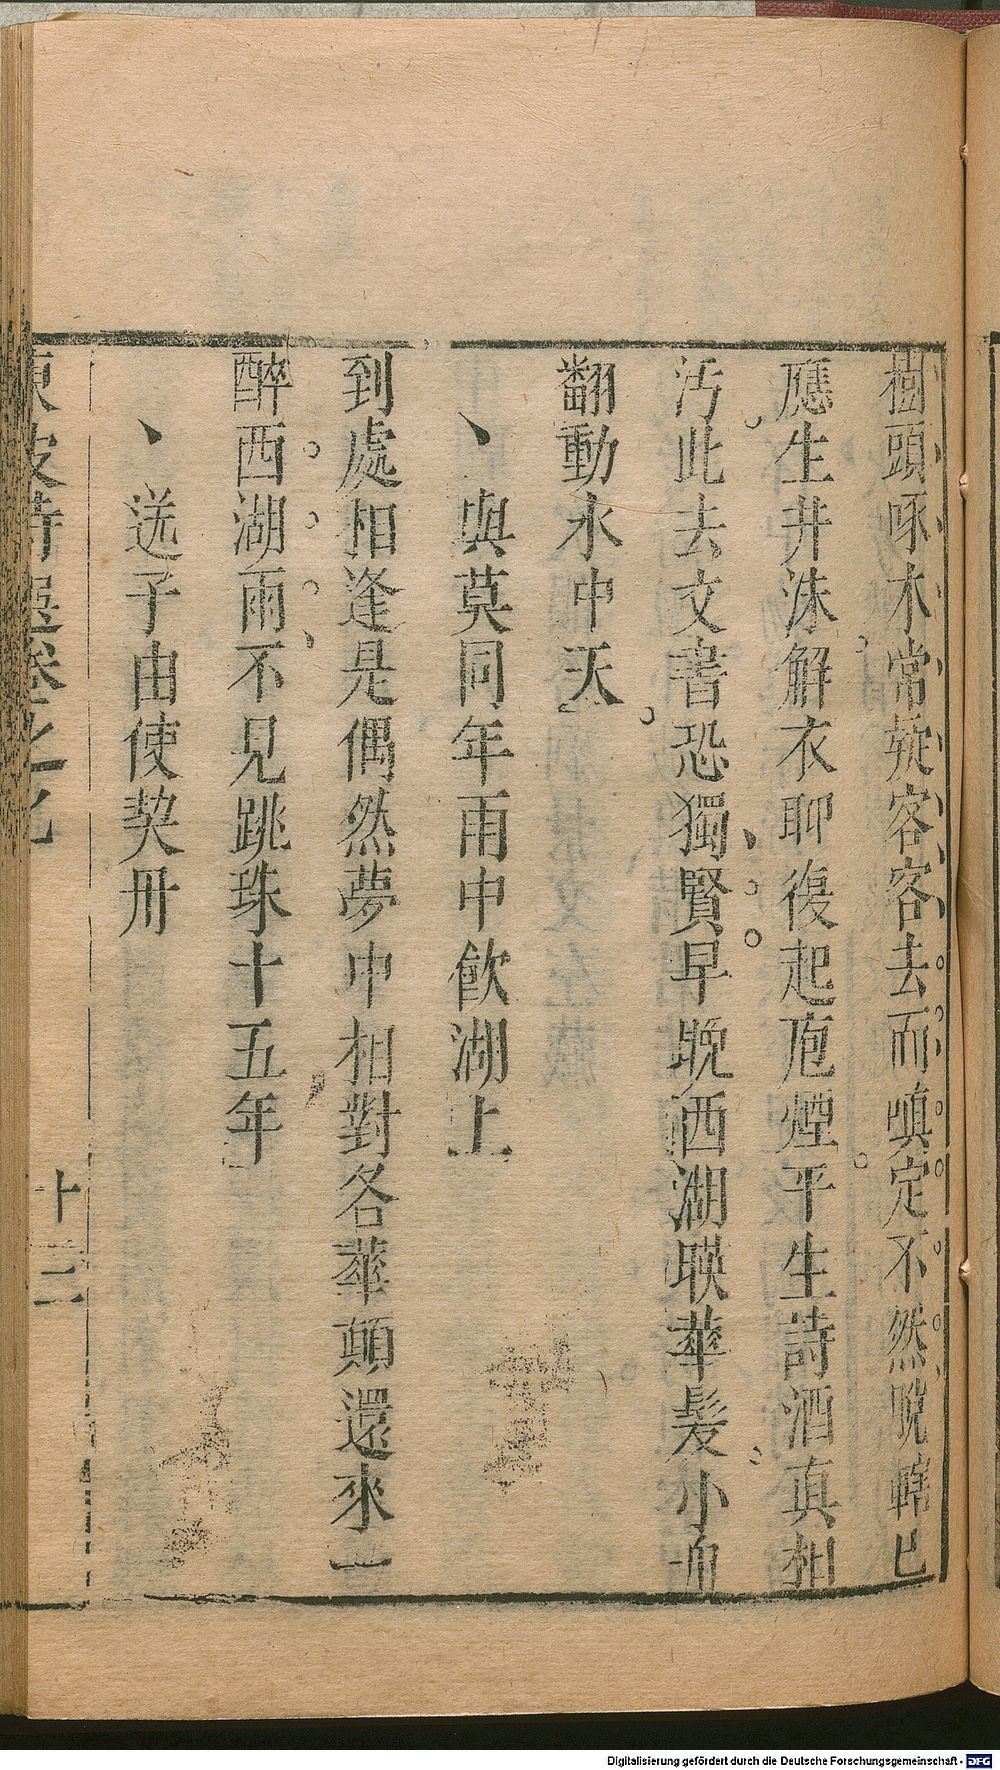 樹頭啄木常疑客客去而嗔定不然脱轄已
應生井沬解衣聊復起庖煙平生詩酒真相
汚此去文書恐獨賢早晚西湖暎華髮小舟
翻動水中天
、與莫同年雨中飲湖上
到處相逢是偶然夢中相對各華顛還來一
醉西湖雨不見跳珠十五年
、送子由使契丹
東坡詩選卷之七
十二
Digitalisierung gefördert durch die Deutsche Forschungsgemeinschaft - DFG